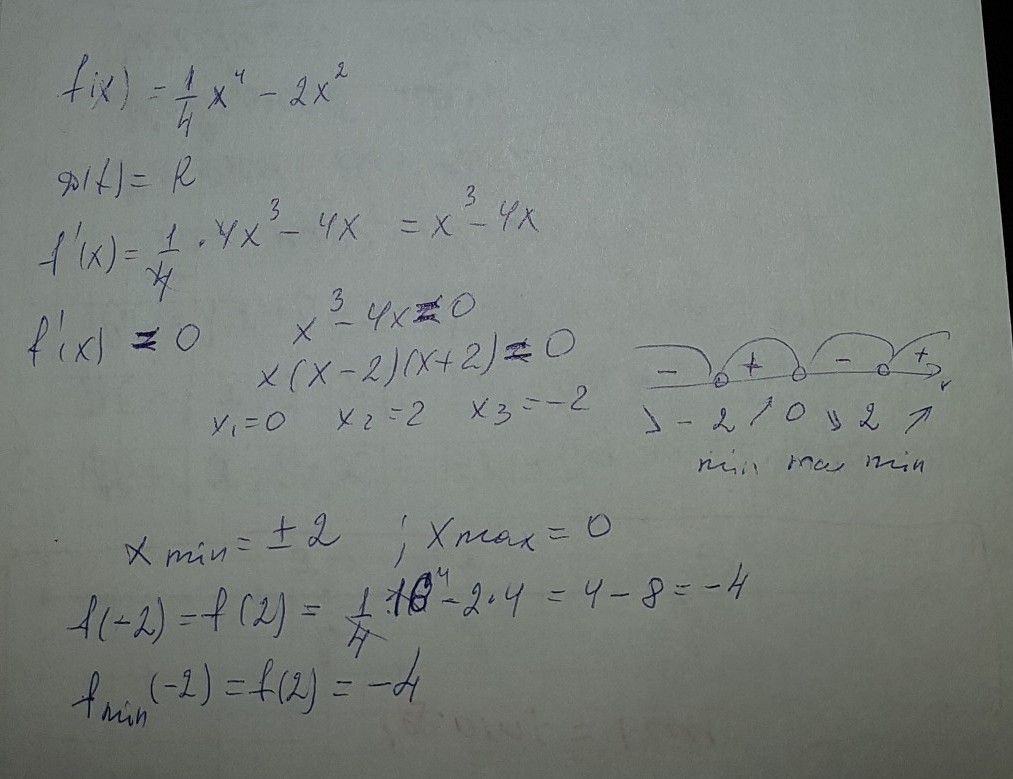 f(x) = 1/4 x⁴ - 2x²
D(f) = R
f'(x) = 1/4 · 4x³ - 4x = x³ - 4x
f'(x) = 0 x³ - 4x = 0
x(x-2)(x+2) = 0
x₁=0 x₂=2 x₃=-2
- + - + x
↘ -2 ↗ 0 ↘ 2 ↗
min max min
x min = ±2 ; x max = 0
f(-2) = f(2) = 1/4 · 16⁴ - 2·4 = 4 - 8 = -4
f min (-2) = f(2) = -4